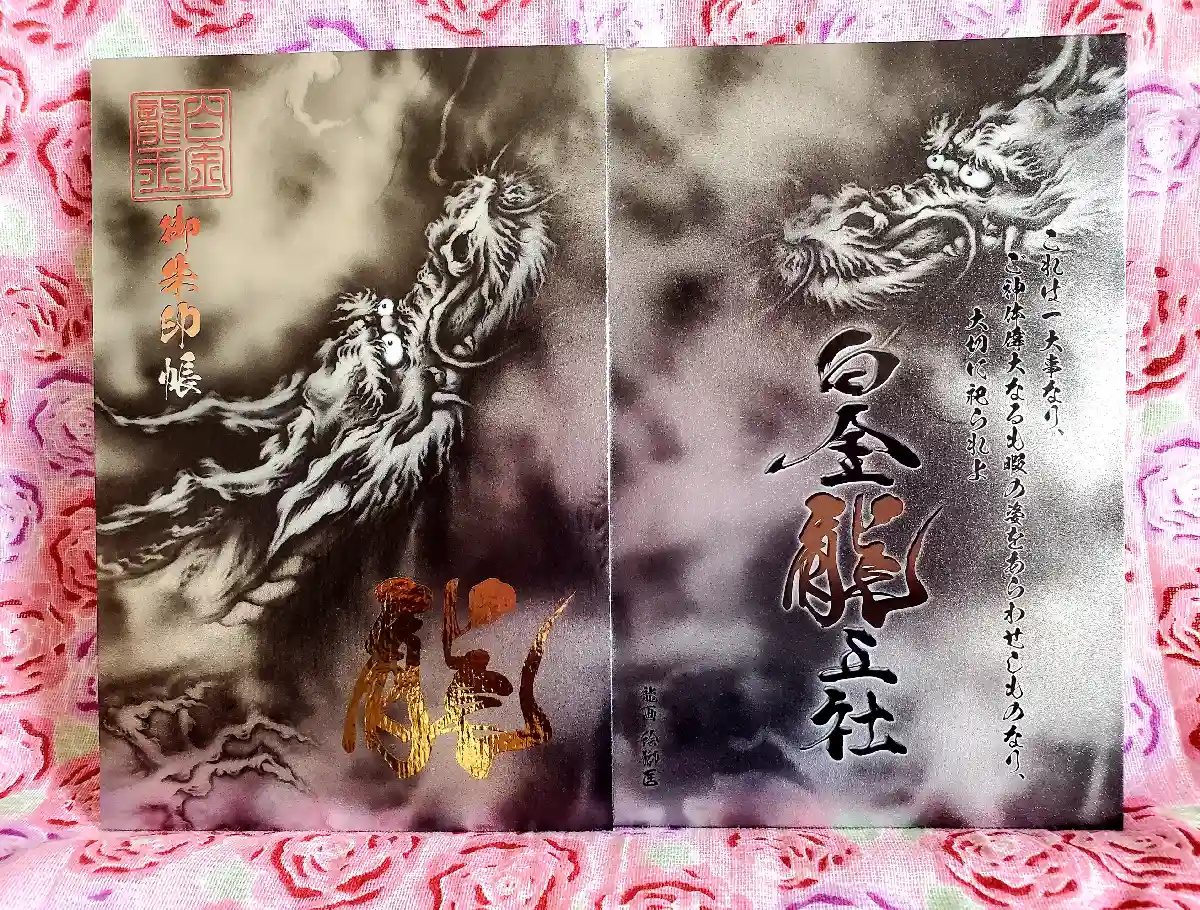 白金
龍王
御朱印帳
龍
これは一大事なり、
ご神体偉大なるも暇の姿をあらわせしものなり、
大切に祀られよ
白金龍王社
龍画